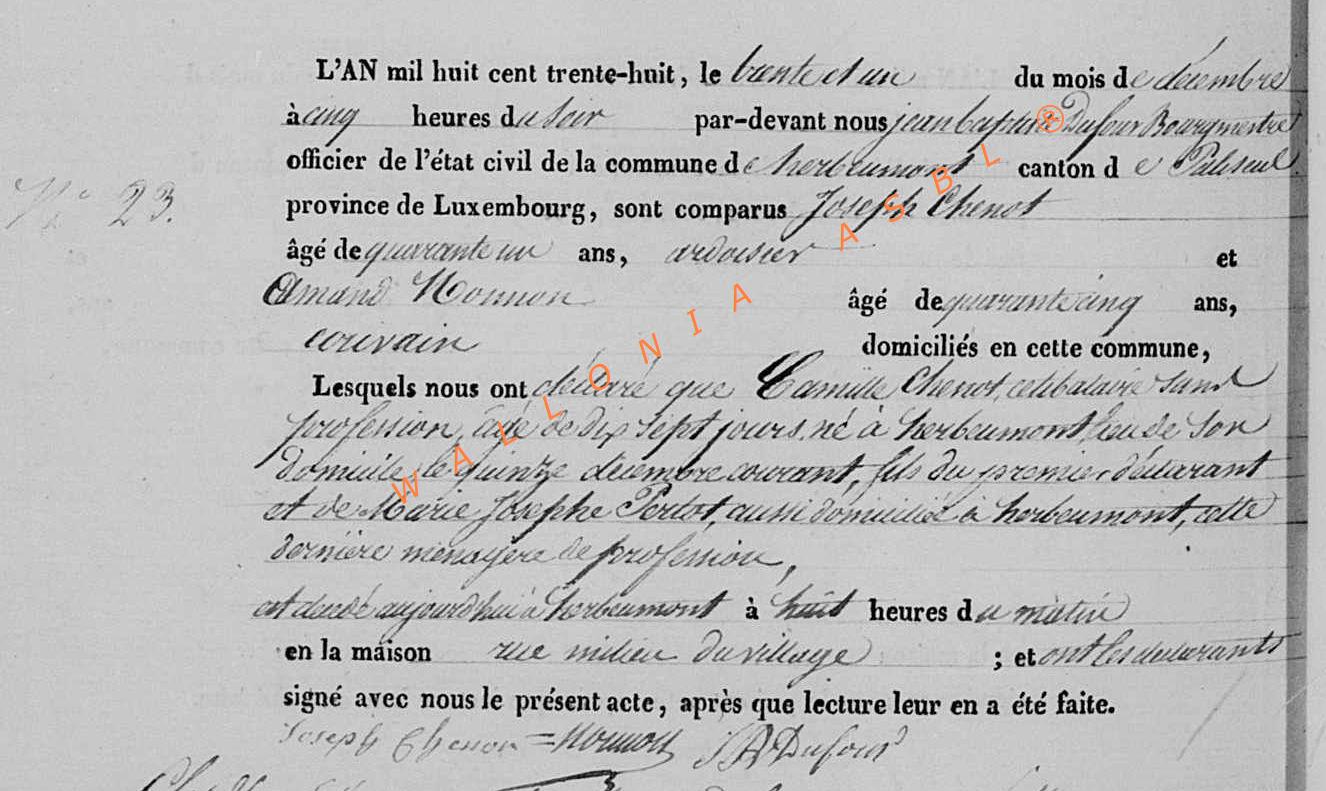 L'AN mil huit cent trente-huit, le trente et un du mois de décembre
à cinq heures du soir par-devant nous jean baptiste Dufour Bourgmestre
officier de l'état civil de la commune de herbeumont canton de Paliseul
N° 23.
province de Luxembourg, sont comparus Joseph Chenot
âgé de quarante un ans, ardoisier et
Amand Monnon âgé de quarante cinq ans,
écrivain domiciliés en cette commune,
Lesquels nous ont déclaré que Camille Chenot, celibataire sans
profession, âgé de dix sept jours, né à herbeumont lieu de son
domicile, le quinze décembre courant, fils du premier déclarant
et de Marie Josephe Pertot, aussi domiciliée à herbeumont, cette
dernière ménagère de profession,
est décédé aujourd'hui à herbeumont à huit heures du matin
en la maison rue milieu du village ; et ont les déclarants
signé avec nous le présent acte, après que lecture leur en a été faite.
Joseph Chenot Monnon JB Dufour
WALLONIA ASBL ®